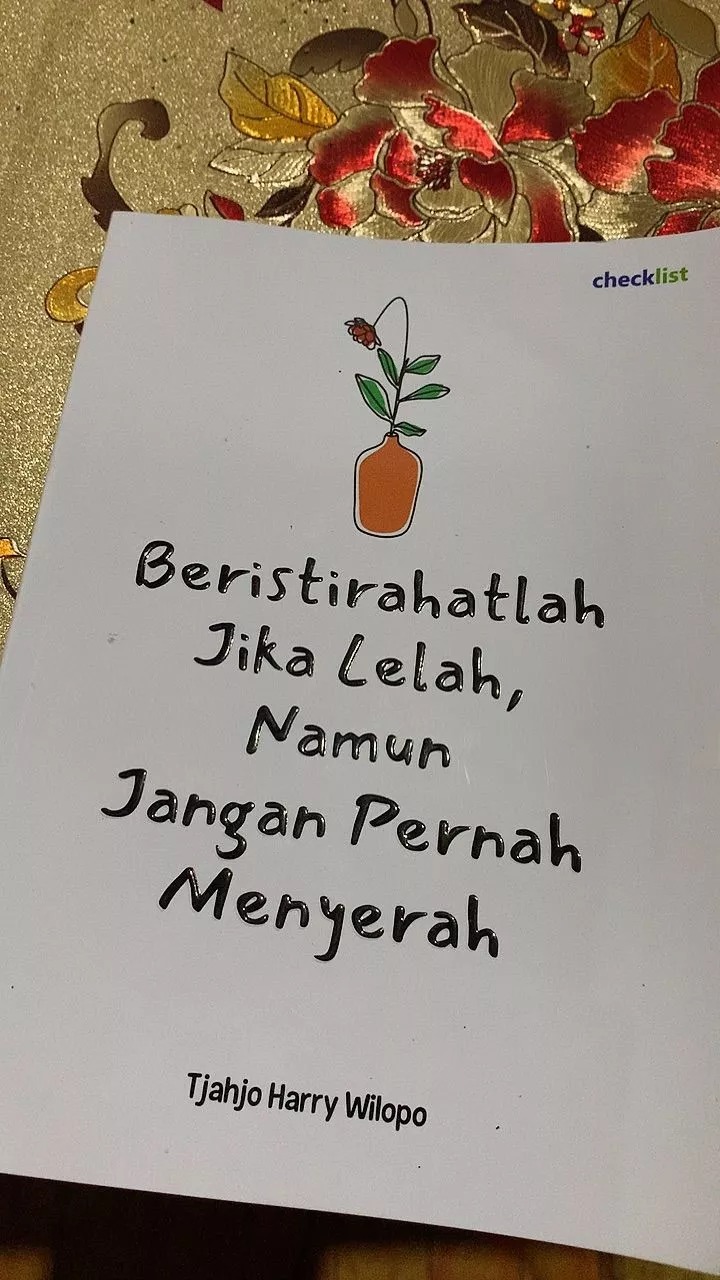 checklist
Beristirahatlah
Jika Lelah,
Namun
Jangan Pernah
Menyerah
Tjahjo Harry Wilopo